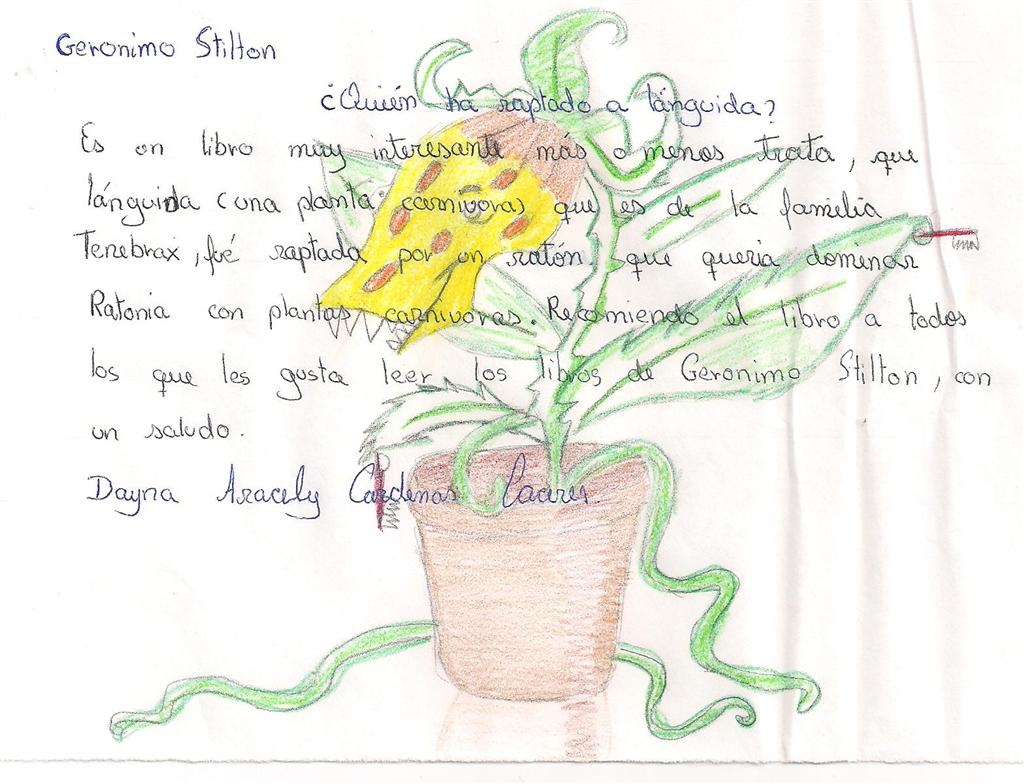 Geronimo Stilton
¿Quién ha raptado a lánguida?
Es un libro muy interesante más o menos trata, que
lánguida (una planta carnivora) que es de la familia
Tenebrax, fué raptada por un ratón que queria dominar
Ratonia con plantas carnivoras. Recomiendo el libro a todos
los que les gusta leer los libros de Geronimo Stilton, con
un saludo.
Dayna Aracely Cardenas